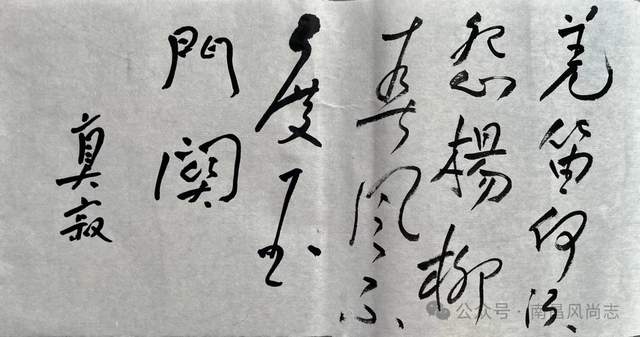 羌笛何须
怨楊柳
春风不
度玉
門関
真寂
公众号·南昌风尚志